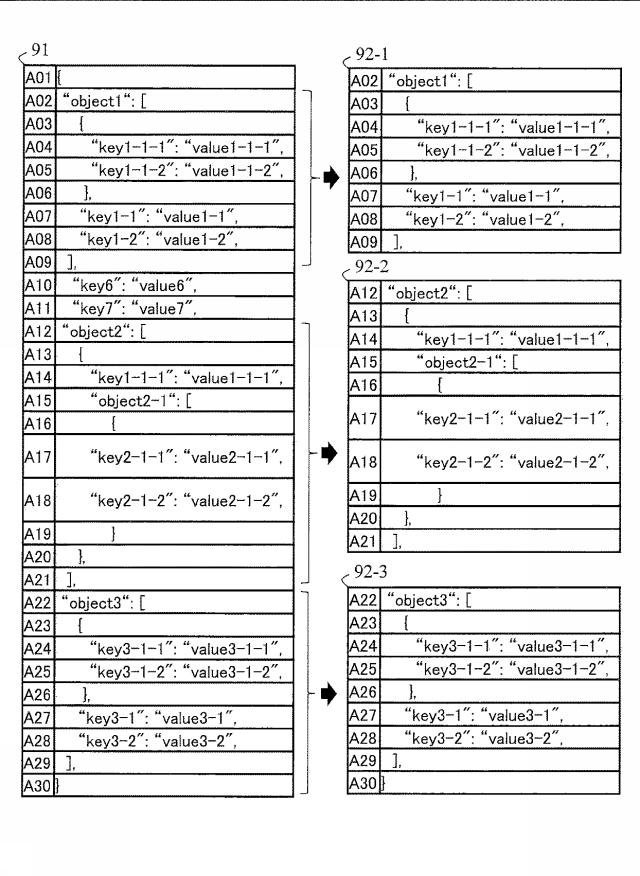 91
A01 {
A02 “object1“: [
A03 {
A04 “key1-1-1”: “value1-1-1”,
A05 “key1-1-2”: “value1-1-2”,
A06 },
A07 “key1-1”: “value1-1”,
A08 “key1-2”: “value1-2”,
A09 ],
A10 “key6”: “value6”,
A11 “key7”: “value7”,
A12 “object2“: [
A13 {
A14 “key1-1-1”: “value1-1-1”,
A15 “object2-1“: [
A16 {
A17 “key2-1-1”: “value2-1-1”,
A18 “key2-1-2”: “value2-1-2”,
A19 }
A20 },
A21 ],
A22 “object3“: [
A23 {
A24 “key3-1-1”: “value3-1-1”,
A25 “key3-1-2”: “value3-1-2”,
A26 },
A27 “key3-1”: “value3-1”,
A28 “key3-2”: “value3-2”,
A29 ],
A30 }
92-1
A02 “object1“: [
A03 {
A04 “key1-1-1”: “value1-1-1”,
A05 “key1-1-2”: “value1-1-2”,
A06 },
A07 “key1-1”: “value1-1”,
A08 “key1-2”: “value1-2”,
A09 ],
92-2
A12 “object2“: [
A13 {
A14 “key1-1-1”: “value1-1-1”,
A15 “object2-1“: [
A16 {
A17 “key2-1-1”: “value2-1-1”,
A18 “key2-1-2”: “value2-1-2”,
A19 }
A20 },
A21 ],
92-3
A22 “object3“: [
A23 {
A24 “key3-1-1”: “value3-1-1”,
A25 “key3-1-2”: “value3-1-2”,
A26 },
A27 “key3-1”: “value3-1”,
A28 “key3-2”: “value3-2”,
A29 ],
A30 }